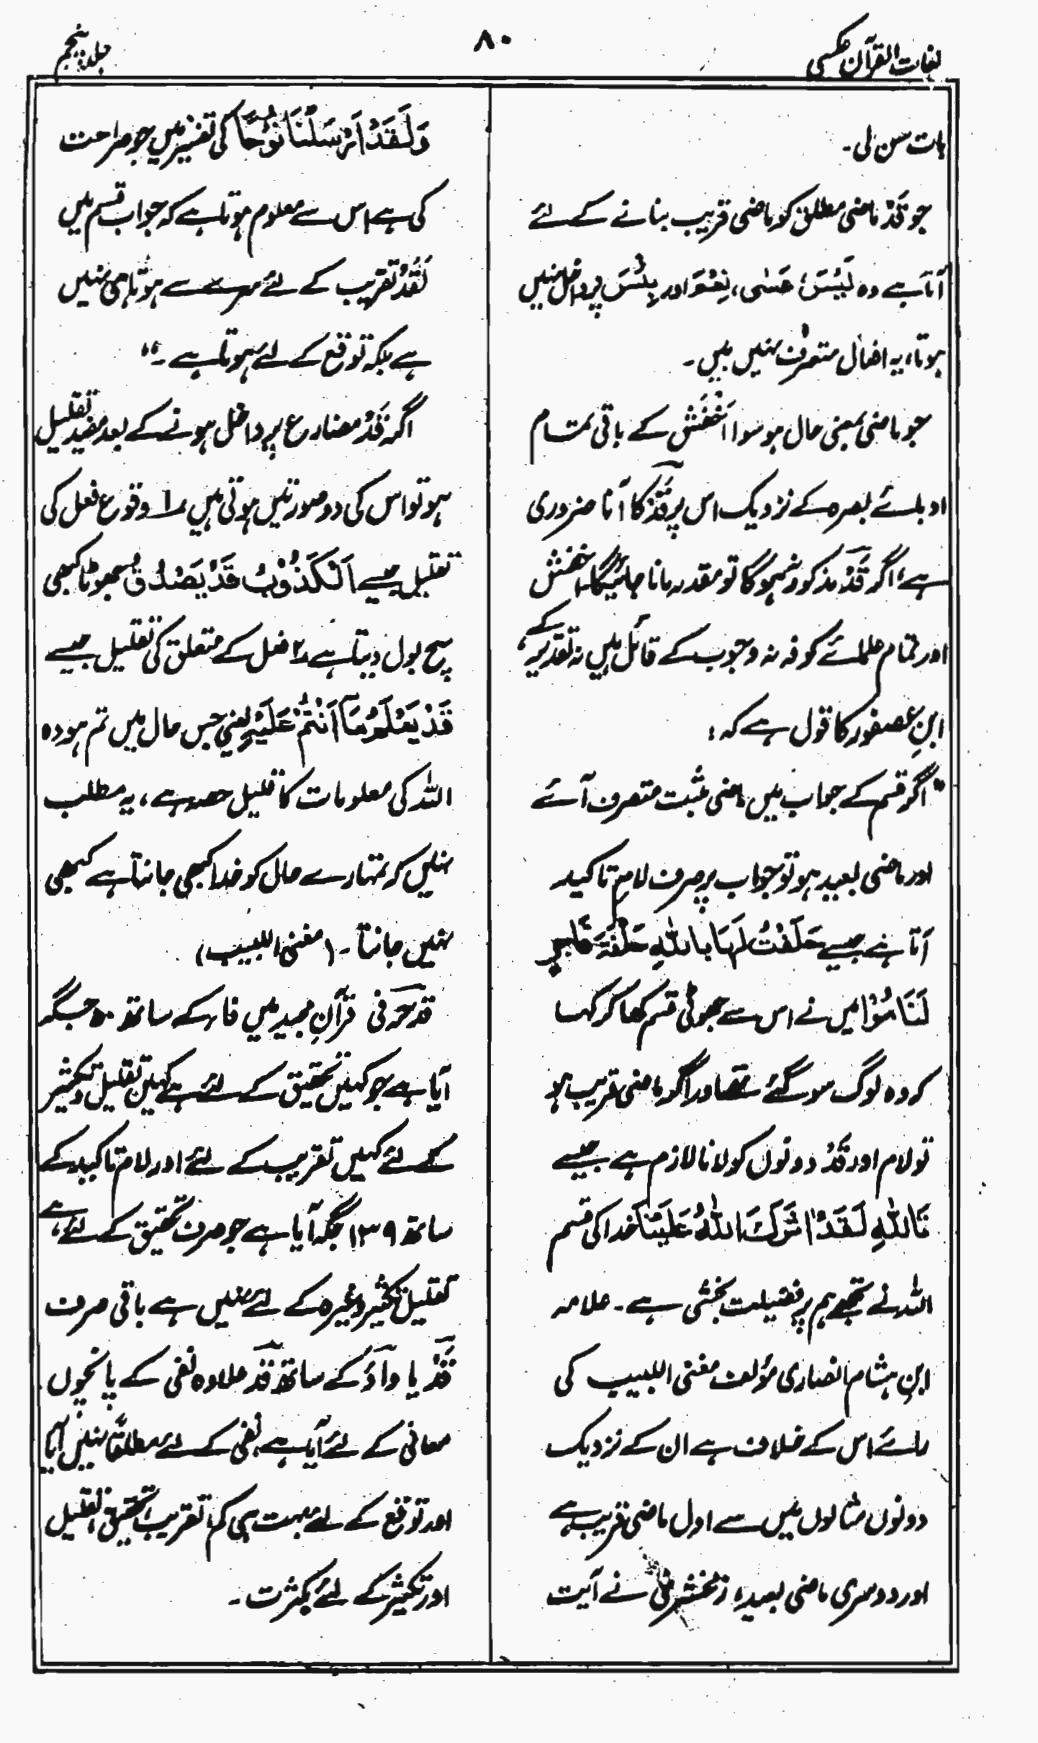 لغات القرآن عکسی
۸۰
جلد پنجم
بات سن لی۔
جو قَدْ ماضی مطلق کو ماضی قریب بنانے کے لئے
آتا ہے وہ لَیْسَ، عَسٰی، نِعْمَ اور بِئْسَ پر داخل نہیں
ہوتا، یہ افعال متصرف نہیں ہیں۔
جو ماضی بمعنی حال ہو سوا اَخْفَش کے باقی تمام
ادبائے بصرہ کے نزدیک اس پر قَدْ کا آنا ضروری
ہے، اگر قَدْ مذکور نہ ہوگا تو مقدر مانا جائیگا۔ اخفش
اور تمام علمائے کوفہ نہ وجوب کے قائل ہیں نہ تقدیر کے،
ابنِ عصفور کا قول ہے کہ:
"اگر قسم کے جواب میں ماضی مثبت متصرف آئے
اور ماضی بعید ہو تو جواب پر صرف لام تاکید
آتا ہے جیسے حَلَفْتُ لَهَا بِاللّٰهِ حَلْفَةَ فَاجِرٍ
لَنَامُوْا میں نے اس سے جھوٹی قسم کھا کر کہا
کہ وہ لوگ سو گئے تھے اور اگر ماضی قریب ہو
تو لام اور قَدْ دونوں کو لانا لازم ہے جیسے
تَاللّٰهِ لَقَدْ اٰثَرَكَ اللّٰهُ عَلَيْنَا خدا کی قسم
اللہ نے تجھے ہم پر فضیلت بخشی ہے۔ علامہ
ابنِ ہشام انصاری مؤلف مغنی اللبیب کی
رائے اس کے خلاف ہے ان کے نزدیک
دونوں مثالوں میں سے اول ماضی قریب ہے
اور دوسری ماضی بعید، زمخشری نے آیت
وَلَقَدْ اَرْسَلْنَا نُوْحًا کی تفسیر میں جو صراحت
کی ہے اس سے معلوم ہوتا ہے کہ جواب قسم میں
لَقَدْ تقریب کے لئے سرے سے ہوتا ہی نہیں
ہے بلکہ توقع کے لئے ہوتا ہے۔"
اگر قَدْ مضارع پر داخل ہونے کے بعد مفید تقلیل
ہو تو اس کی دو صورتیں ہوتی ہیں ۱ وقوع فعل کی
تقلیل جیسے اَلْكَذُوْبُ قَدْ يَصْدُقُ جھوٹا کبھی
سچ بول دیتا ہے ۲ فعل کے متعلق کی تقلیل جیسے
قَدْ يَعْلَمُ مَا اَنْتُمْ عَلَيْهِ یعنی جس حال میں تم ہو وہ
اللہ کی معلومات کا قلیل حصہ ہے، یہ مطلب
نہیں کہ تمہارے حال کو خدا کبھی جانتا ہے کبھی
نہیں جانتا۔ (مغنی اللبیب)
قد حرفی قرآن مجید میں فاء کے ساتھ ۵۰ جگہ
آیا ہے جو کہیں تحقیق کے لئے ہے کہیں تقلیل و تکثیر
کے لئے کہیں تقریب کے لئے اور لام تاکید کے
ساتھ ۱۳۹ جگہ آیا ہے جو صرف تحقیق کے لئے ہے،
تقلیل تکثیر وغیرہ کے لئے نہیں ہے باقی صرف
قَدْ یا واؤ کے ساتھ قَدْ علاوہ نفی کے پانچوں
معانی کے لئے آیا ہے نفی کے لئے مطلقاً نہیں آیا
اور توقع کے لئے بہت ہی کم، تقریب، تحقیق، تقلیل
اور تکثیر کے لئے بکثرت۔